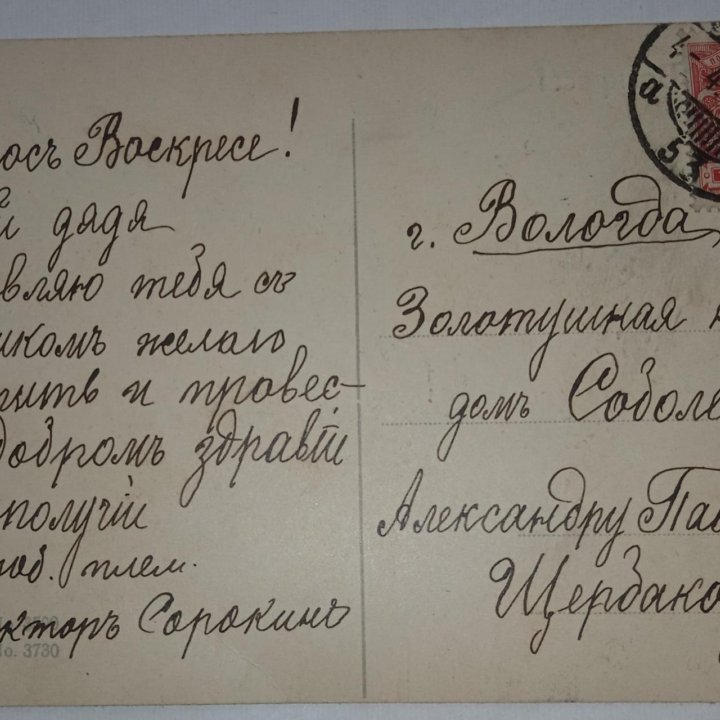 ось Воскресе!
й дядя
вляю тебя съ
икомъ желаю
тить и провес-
добромъ здравіи
получіи
юб. плем.
кторъ Сорокинъ
No. 3730
4-4
а
53
г. Вологда,
Золотушная н
домъ Соболе
Александру Пав
Щербако